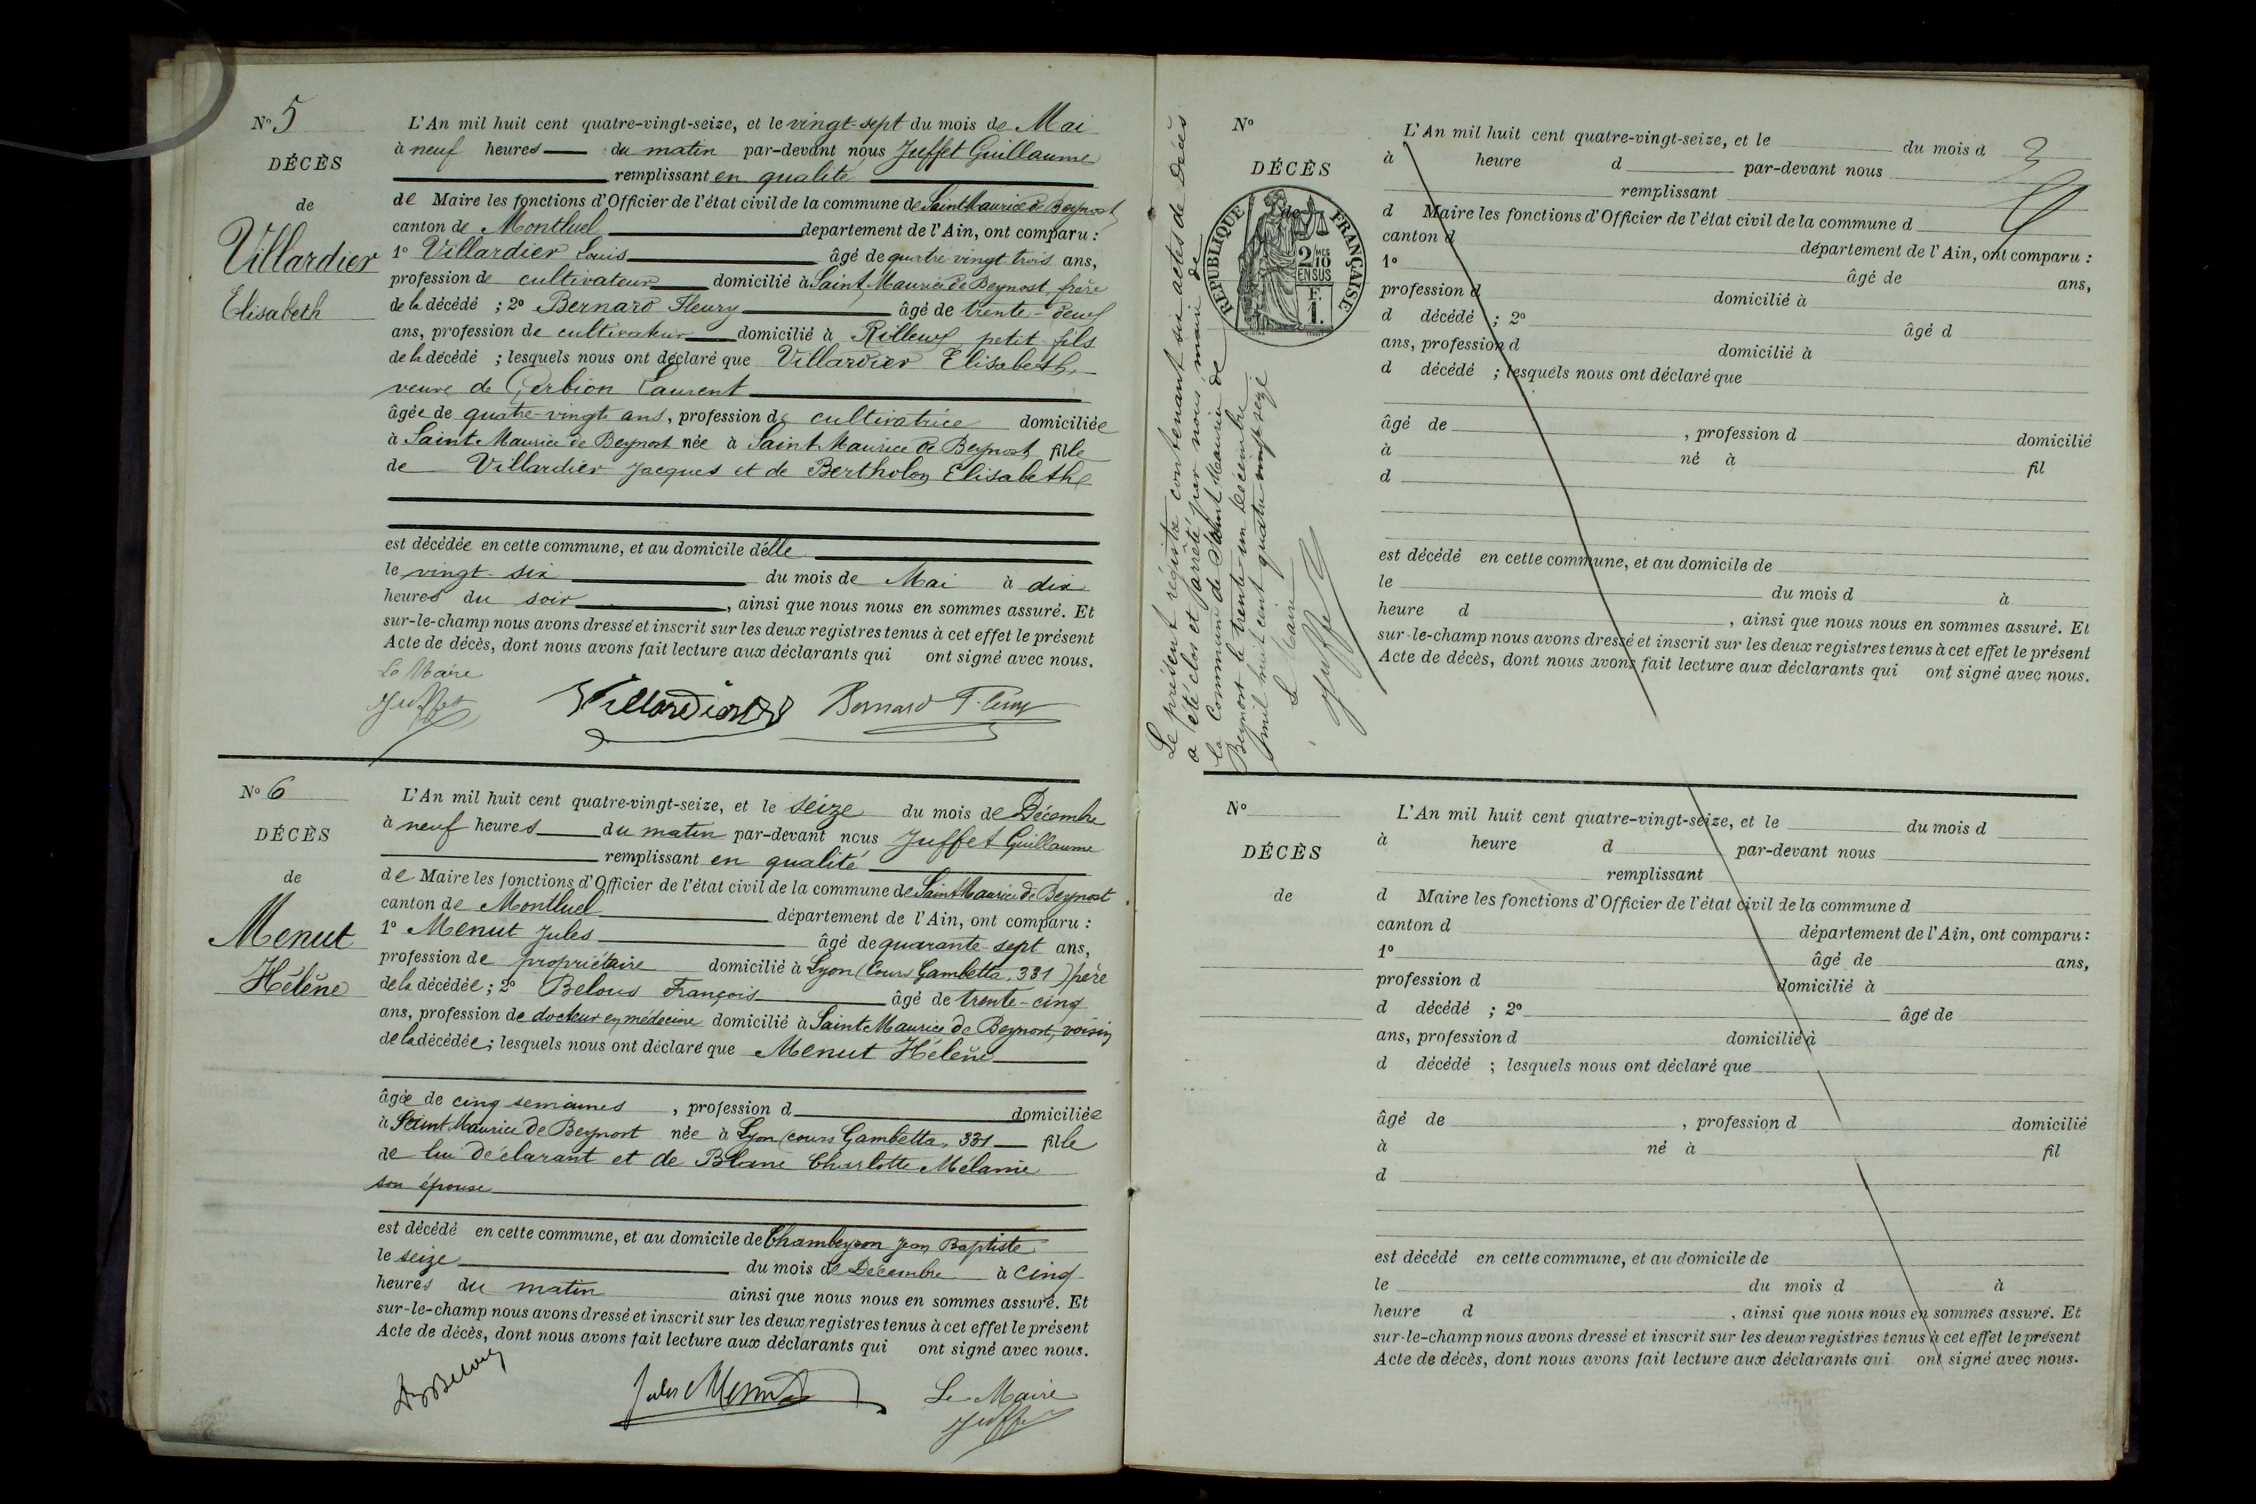 N° 5
DÉCÈS
de
Villardier
Elisabeth
L'An mil huit cent quatre-vingt-seize, et le vingt-sept du mois de Mai
à neuf heures du matin par-devant nous Juffet Guillaume
remplissant en qualité
de Maire les fonctions d'Officier de l'état civil de la commune de Saint Maurice de Beynost
canton de Montluel département de l'Ain, ont comparu :
1° Villardier Louis âgé de quatre vingt trois ans,
profession de cultivateur domicilié à Saint Maurice de Beynost frère
de la décédé ; 2° Bernard Fleury âgé de trente-deux
ans, profession de cultivateur domicilié à Rillieux petit fils
de la décédé ; lesquels nous ont déclaré que Villardier Elisabeth
veuve de Gerbion Laurent
âgée de quatre-vingts ans, profession de cultivatrice domiciliée
à Saint Maurice de Beynost née à Saint Maurice de Beynost fille
de Villardier Jacques et de Bertholon Elisabeth
est décédée en cette commune, et au domicile d'elle
le vingt-six du mois de Mai à dix
heures du soir, ainsi que nous nous en sommes assuré. Et
sur-le-champ nous avons dressé et inscrit sur les deux registres tenus à cet effet le présent
Acte de décès, dont nous avons fait lecture aux déclarants qui ont signé avec nous.
Le Maire
Juffet Villardier Bernard Fleury
N° 6
DÉCÈS
de
Menut
Hélène
L'An mil huit cent quatre-vingt-seize, et le seize du mois de Décembre
à neuf heures du matin par-devant nous Juffet Guillaume
remplissant en qualité
de Maire les fonctions d'Officier de l'état civil de la commune de Saint Maurice de Beynost
canton de Montluel département de l'Ain, ont comparu :
1° Menut Jules âgé de quarante-sept ans,
profession de propriétaire domicilié à Lyon (Cours Gambetta, 331) père
de la décédée ; 2° Belous François âgé de trente-cinq
ans, profession de docteur en médecine domicilié à Saint Maurice de Beynost, voisin
de la décédée ; lesquels nous ont déclaré que Menut Hélène
âgée de cinq semaines, profession d domiciliée
à Saint Maurice de Beynost née à Lyon (cours Gambetta, 331 fille
de lui déclarant et de Blanc Charlotte Mélanie
son épouse
est décédé en cette commune, et au domicile de Chambeyron Jean Baptiste
le seize du mois de Décembre à cinq
heures du matin ainsi que nous nous en sommes assuré. Et
sur-le-champ nous avons dressé et inscrit sur les deux registres tenus à cet effet le présent
Acte de décès, dont nous avons fait lecture aux déclarants qui ont signé avec nous.
Jules Menut
Le Maire
Juffet
Le présent registre contenant six actes de Décès
a été clos et arrêté par nous maire de
la Commune de Saint Maurice de
Beynost le trente un Décembre
mil huit cent quatre vingt seize
Le Maire
Juffet
N°
DÉCÈS
de
RÉPUBLIQUE FRANÇAISE
2/10 MES
EN SUS
F.
1.
L'An mil huit cent quatre-vingt-seize, et le du mois d
3
à heure d par-devant nous
remplissant
d Maire les fonctions d'Officier de l'état civil de la commune d
canton d département de l'Ain, ont comparu :
1° âgé de ans,
profession d domicilié à
d décédé ; 2° âgé d
ans, profession d domicilié à
d décédé ; lesquels nous ont déclaré que
âgé de , profession d domicilié
à né à fil
d
est décédé en cette commune, et au domicile de
le du mois d à
heure d , ainsi que nous nous en sommes assuré. Et
sur-le-champ nous avons dressé et inscrit sur les deux registres tenus à cet effet le présent
Acte de décès, dont nous avons fait lecture aux déclarants qui ont signé avec nous.
N°
DÉCÈS
de
L'An mil huit cent quatre-vingt-seize, et le du mois d
à heure d par-devant nous
remplissant
d Maire les fonctions d'Officier de l'état civil de la commune d
canton d département de l'Ain, ont comparu :
1° âgé de ans,
profession d domicilié à
d décédé ; 2° âgé de
ans, profession d domicilié à
d décédé ; lesquels nous ont déclaré que
âgé de , profession d domicilié
à né à fil
d
est décédé en cette commune, et au domicile de
le du mois d à
heure d , ainsi que nous nous en sommes assuré. Et
sur-le-champ nous avons dressé et inscrit sur les deux registres tenus à cet effet le présent
Acte de décès, dont nous avons fait lecture aux déclarants qui ont signé avec nous.